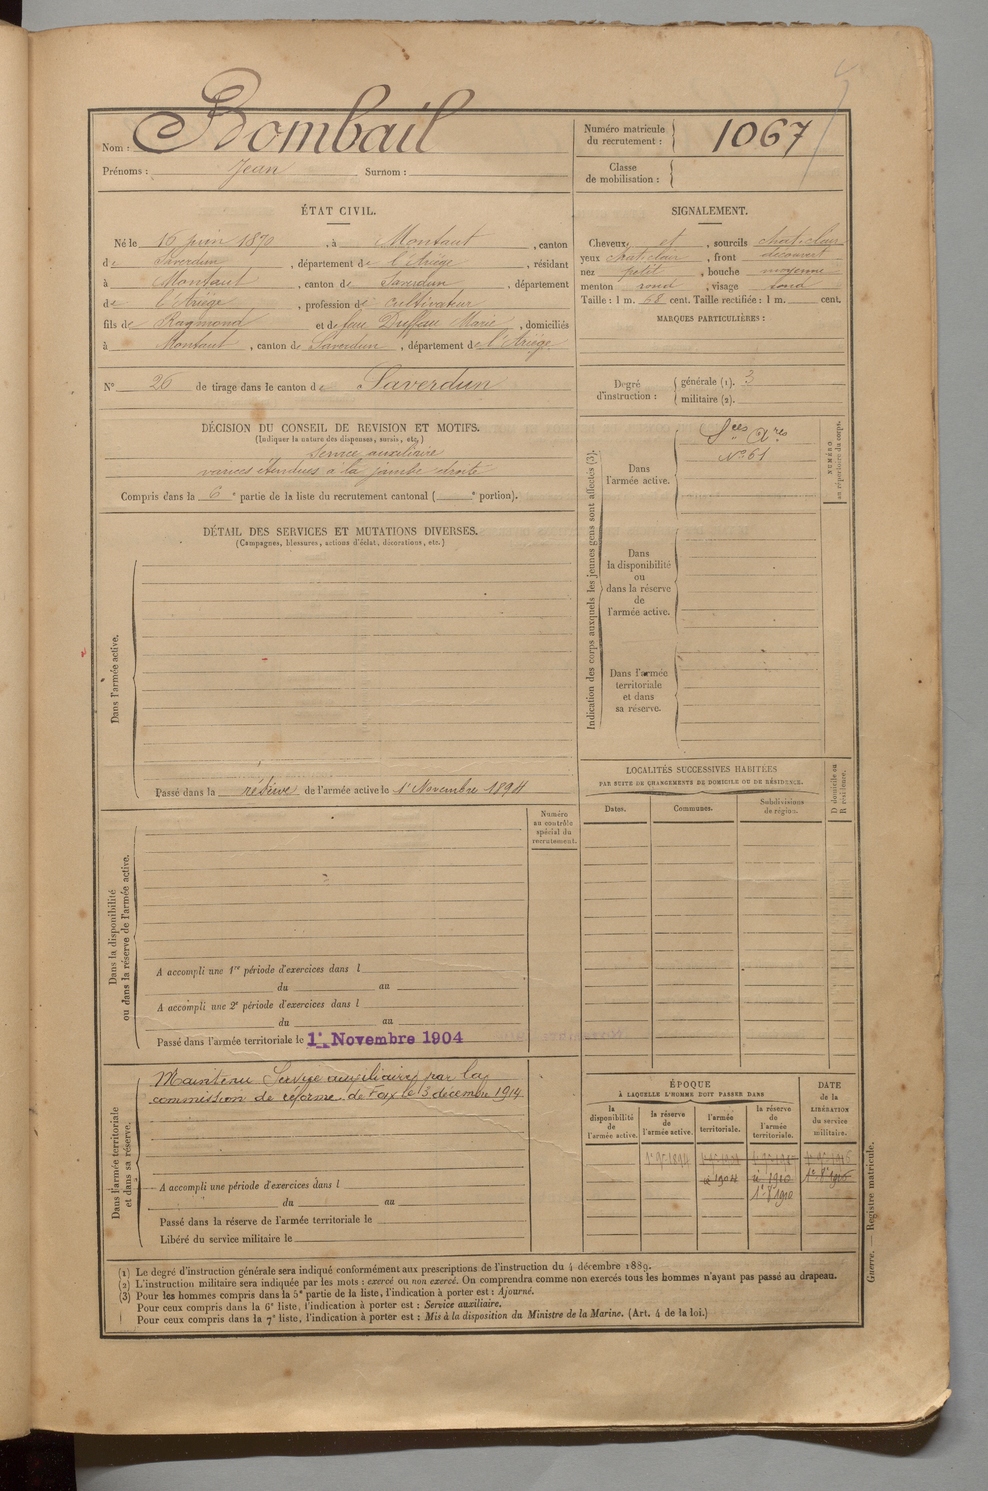 Nom : Bombail
Prénoms : Jean Surnom :
Numéro matricule du recrutement : 1067
Classe de mobilisation :
ÉTAT CIVIL.
Né le 16 juin 1870, à Montaut, canton
de Saverdun, département de l'Ariège, résidant
à Montaut, canton de Saverdun, département
de l'Ariège, profession de cultivateur
fils de Raymond et de feue Duffau Marie, domiciliés
à Montaut, canton de Saverdun, département de l'Ariège.
N° 26 de tirage dans le canton de Saverdun
SIGNALEMENT.
Cheveux et, sourcils chat.clair
yeux chat.clair, front découvert
nez petit, bouche moyenne
menton rond, visage rond
Taille : 1 m. 68 cent. Taille rectifiée : 1 m. cent.
MARQUES PARTICULIÈRES :
Degré d'instruction : générale (1). 3
militaire (2).
DÉCISION DU CONSEIL DE REVISION ET MOTIFS.
(Indiquer la nature des dispenses, sursis, etc.)
service auxiliaire
varices étendues à la jambe droite
Compris dans la 6e partie de la liste du recrutement cantonal ( e portion).
DÉTAIL DES SERVICES ET MUTATIONS DIVERSES.
(Campagnes, blessures, actions d'éclat, décorations, etc.)
Dans l'armée active.
Passé dans la réserve de l'armée active le 1er Novembre 1894
Indication des corps auxquels les jeunes gens sont affectés (3).
NUMÉRO au répertoire du corps.
Dans l'armée active.
Sces Ares
N° 61
Dans la disponibilité ou dans la réserve de l'armée active.
Dans l'armée territoriale et dans sa réserve.
LOCALITÉS SUCCESSIVES HABITÉES
PAR SUITE DE CHANGEMENTS DE DOMICILE OU DE RÉSIDENCE.
Dates. Communes. Subdivisions de région. D domicile ou R résidence.
Numéro au contrôle spécial du recrutement.
Dans la disponibilité ou dans la réserve de l'armée active.
A accompli une 1re période d'exercices dans l
du au
A accompli une 2e période d'exercices dans l
du au
Passé dans l'armée territoriale le 1er Novembre 1904
Dans l'armée territoriale et dans sa réserve.
Maintenu Service auxiliaire par la
commission de réforme de Foix le 13 décembre 1914
A accompli une période d'exercices dans l
du au
Passé dans la réserve de l'armée territoriale le
Libéré du service militaire le
ÉPOQUE
À LAQUELLE L'HOMME DOIT PASSER DANS
la disponibilité de l'armée active. la réserve de l'armée active. l'armée territoriale. la réserve de l'armée territoriale.
DATE de la LIBÉRATION du service militaire.
1er 9bre 1894
1904 1910
1er 8bre 1910
(1) Le degré d'instruction générale sera indiqué conformément aux prescriptions de l'instruction du 4 décembre 1889.
(2) L'instruction militaire sera indiquée par les mots : exercé ou non exercé. On comprendra comme non exercés tous les hommes n'ayant pas passé au drapeau.
(3) Pour les hommes compris dans la 5e partie de la liste, l'indication à porter est : Ajourné.
Pour ceux compris dans la 6e liste, l'indication à porter est : Service auxiliaire.
Pour ceux compris dans la 7e liste, l'indication à porter est : Mis à la disposition du Ministre de la Marine. (Art. 4 de la loi.)
Guerre. — Registre matricule.